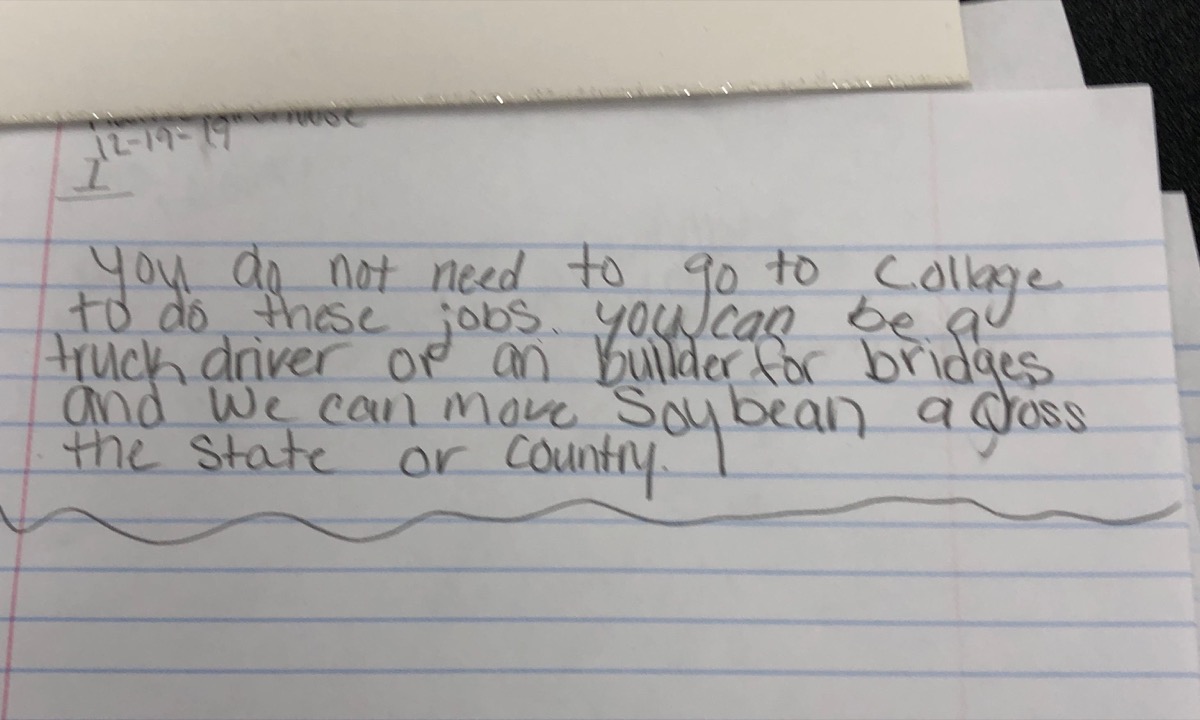 12-19-19
1
you do not need to go to collage
to do these jobs. you can be a
truck driver or an builder for bridges
and we can move Soybean across
the state or country.